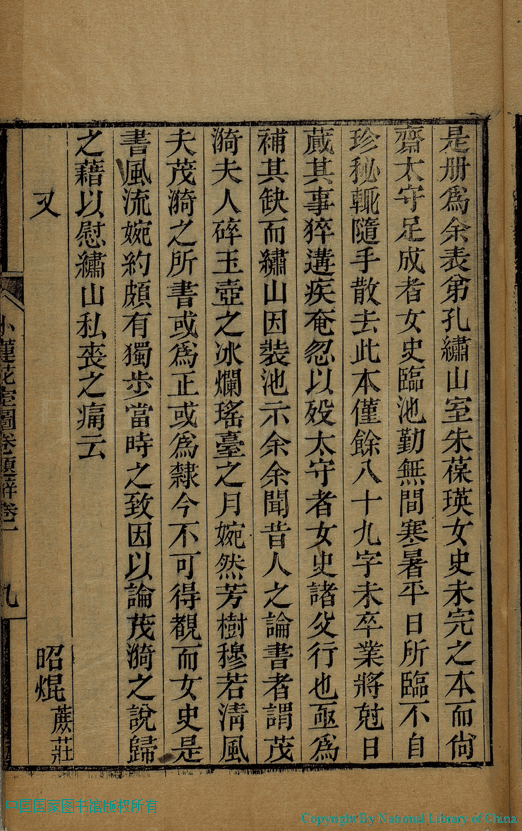 是册爲余表弟孔繡山室朱葆瑛女史未完之本而尙
齋太守足成者女史臨池勤無間寒暑平日所臨不自
珍秘輒隨手散去此本僅餘八十九字未卒業將尅日
蕆其事猝遘疾奄忽以歿太守者女史諸父行也亟爲
補其缺而繡山因裝池示余余聞昔人之論書者謂茂
漪夫人碎玉壺之冰爛瑤臺之月婉然芳樹穆若淸風
夫茂漪之所書或爲正或爲隸今不可得覩而女史是
書風流婉約頗有獨步當時之致因以論茂漪之說歸
之藉以慰繡山私喪之痛云
又
昭焜 蔗莊
小蓮花室圖卷題辭卷二
九
中国国家图书馆版权所有
Copyright By National Library of China